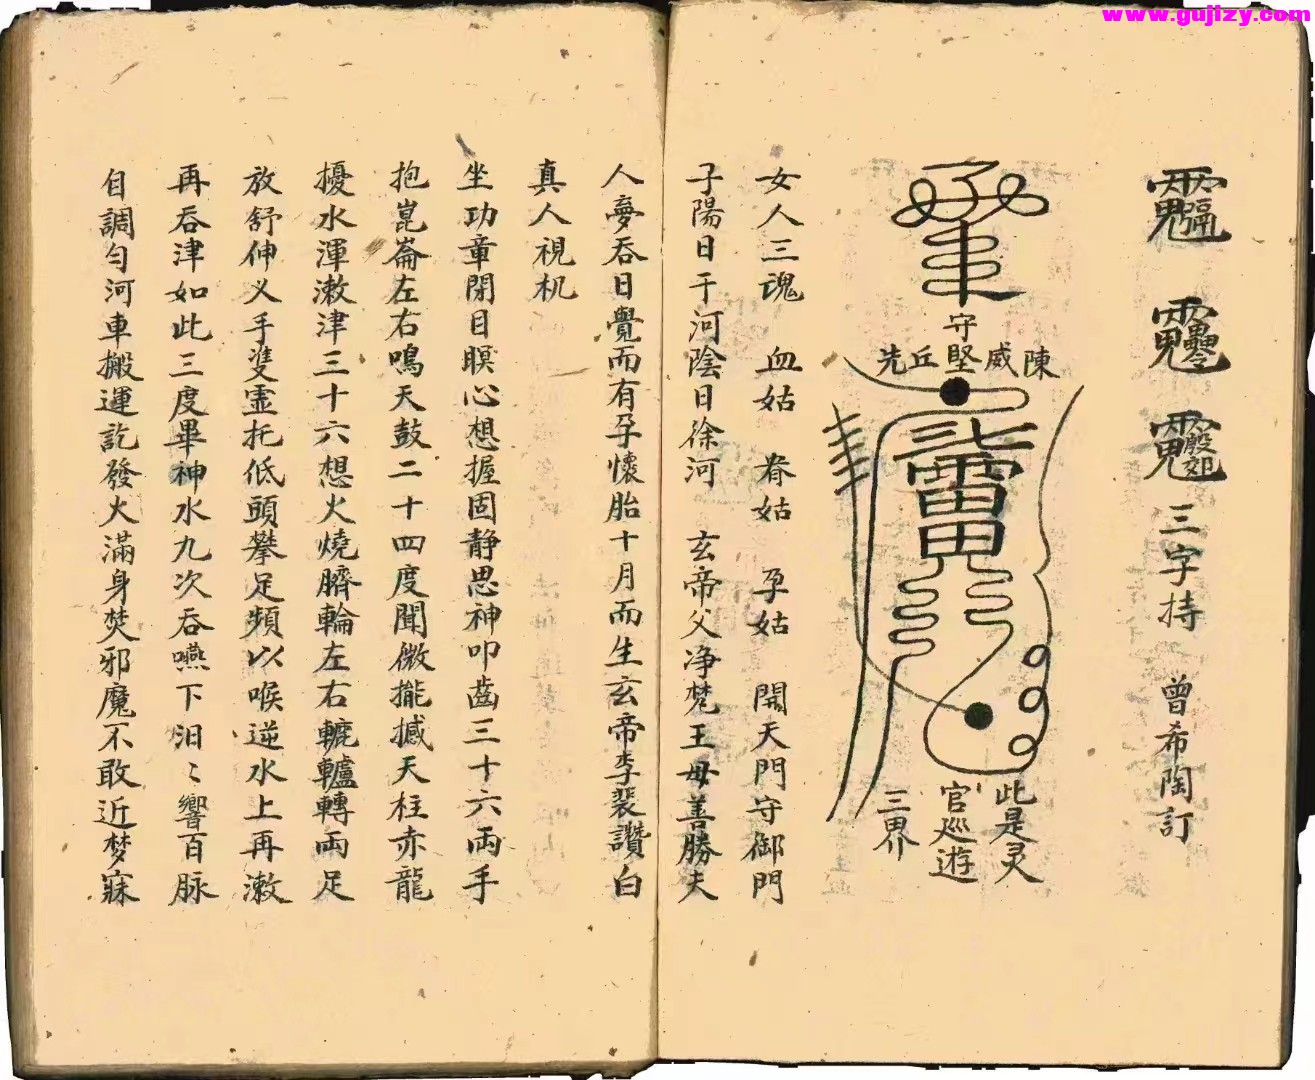 www.gujizy.com
三字持 曾希陶訂
守堅
陳威丘先
此是灵
官巡遊
三界
女人三魂 血姑 眷姑 孕姑 開天門守御門
子陽日干河陰日徐河 玄帝父净梵王母善勝夫
人夢吞日覺而有孕懷胎十月而生玄帝李裴讚白
真人視机
坐功章閉目瞑心想握固静思神叩齒三十六兩手
抱崑崙左右鳴天鼓二十四度聞微擺撼天柱赤龍
擾水渾漱津三十六想火燒臍輪左右轆轤轉両足
放舒伸义手䨇虚托低頭攀足頻以喉逆水上再漱
再吞津如此三度畢神水九次吞嚥下汨〻響百脉
自調匀河車搬運訖發火滿身焚邪魔不敢近梦寐